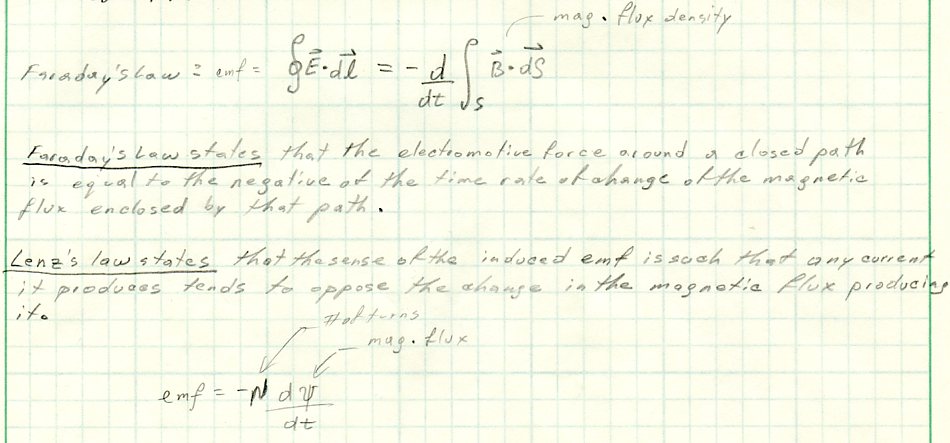 mag. flux density
Faraday's Law = emf = ∮E⃗·dl⃗ = -d/dt ∫S B⃗·dS⃗
Faraday's Law states that the electromotive force around a closed path
is equal to the negative of the time rate of change of the magnetic
flux enclosed by that path.
Lenz's law states that the sense of the induced emf is such that any current
it produces tends to oppose the change in the magnetic flux producing
it.
# of turns
mag. flux
emf = -N dψ/dt